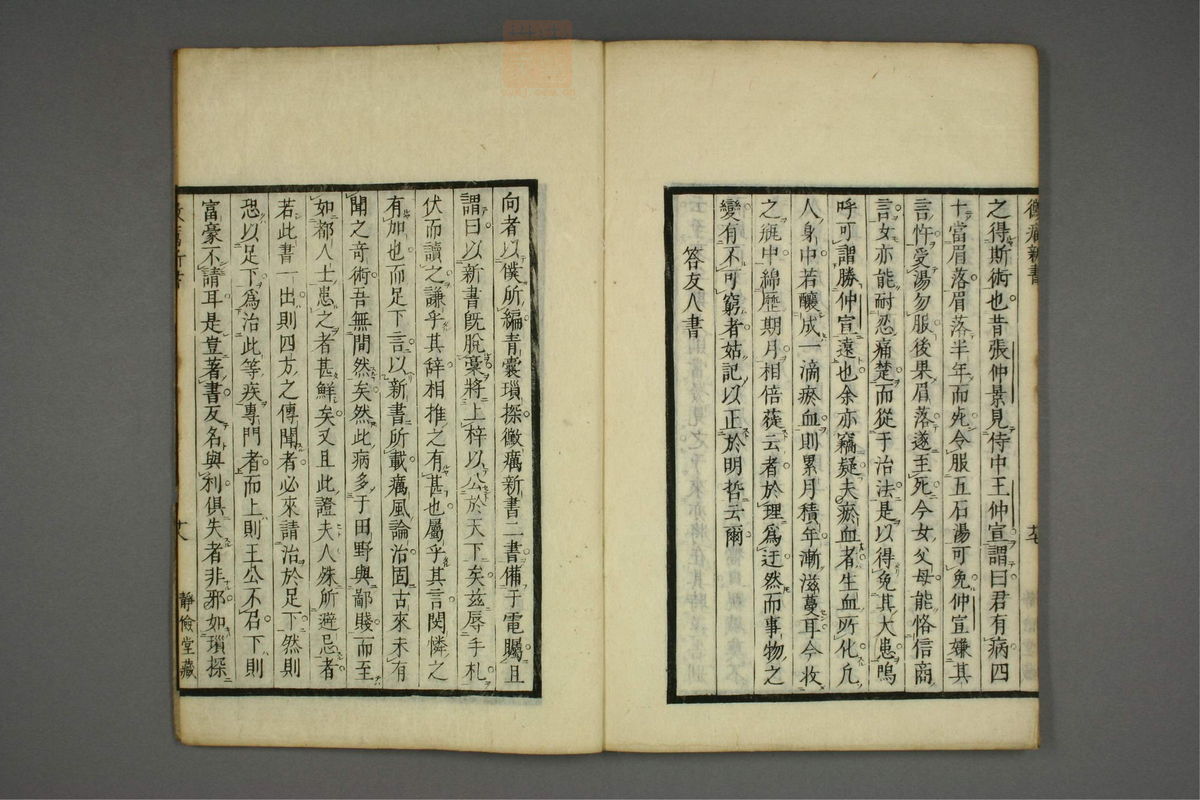 黴癘新書
之得斯術也昔張仲景見侍中王仲宣謂曰君有病四
十當眉落眉落半年而死今服五石湯可免仲宣嫌其
言忤受湯勿服後果眉落遂至死今女父母能恪信商
言女亦能耐忍痛楚而從于治法是以得免其大患嗚
呼可謂勝仲宣遠也余亦竊疑夫瘀血者生血所化凡
人身中若釀成一滴瘀血則累月積年漸滋蔓耳今收
之瓶中綿歷期月相倍蓰云者於理為迂然而事物之
變有不可窮者姑記以正於明哲云爾
答友人書
向者以僕所編青囊瑣探黴癘新書二書備于電矚且
謂曰以新書既脫稾將上梓以公於天下矣茲辱手札
伏而讀之謙乎其辞相推之有甚也屬乎其言閔憐之
有加也而足下言以新書所載癘風論治固古來未有
聞之奇術吾無間然矣然此病多于田野與鄙賤而至
如都人士患之者甚鮮矣又且此證夫人殊所避忌者
若此書一出則四方之傳聞者必來請治於足下然則
恐以足下為治此等疾專門者而上則王公不召下則
富豪不請耳是豈著書反名與利俱失者非邪如瑣探
黴癘新書
廿八
靜儉堂藏